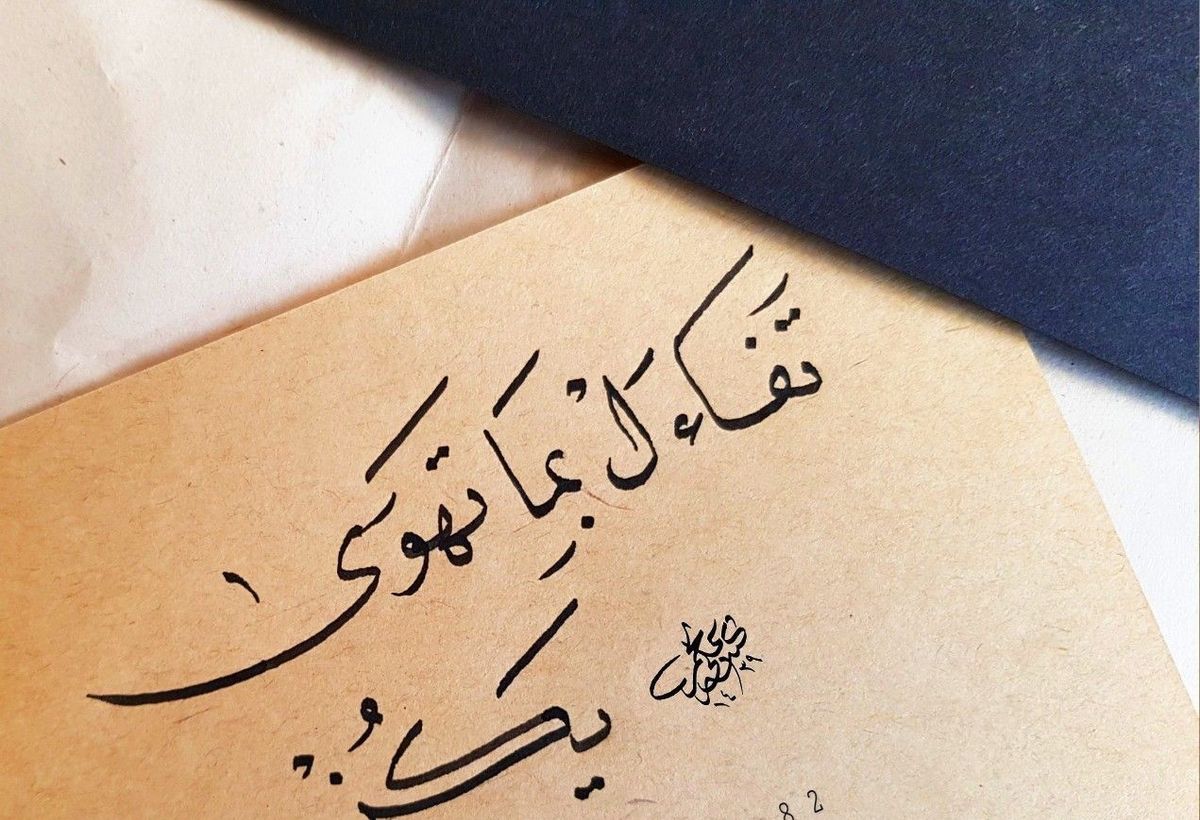 تَفَاءَلْ بِمَا تَهوَى
يَكُنْ
82